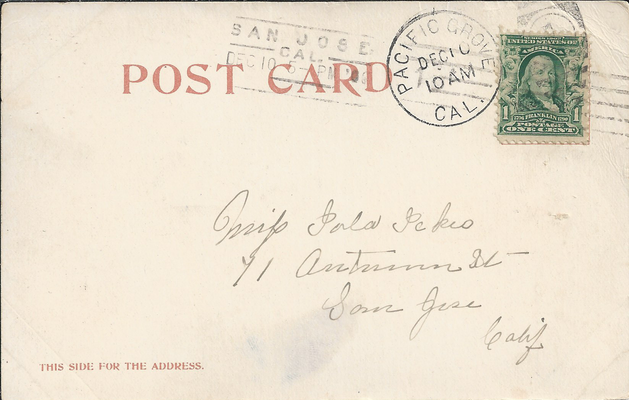 SAN JOSE
CAL.
DEC 10 5-PM '06
POST CARD
PACIFIC GROVE
DEC 10
10 AM
CAL.
SERIES 1902
UNITED STATES OF
AMERICA
1 1
1706 FRANKLIN 1790
POSTAGE
ONE CENT
Miss Iola Ickes
71 Autumn St
San Jose
Calif
THIS SIDE FOR THE ADDRESS.